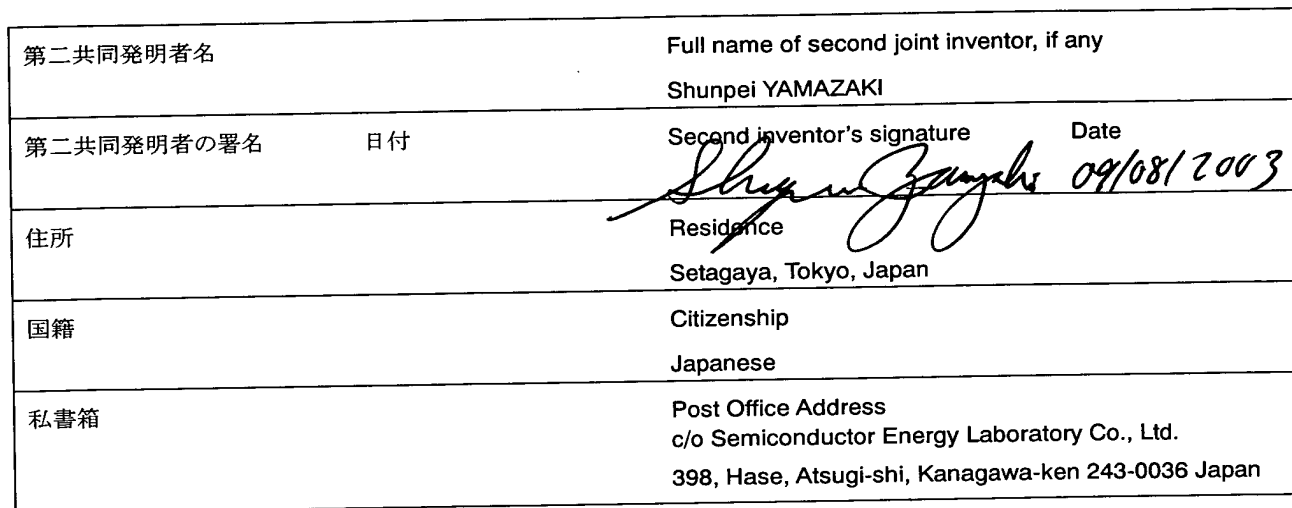 第二共同発明者名
Full name of second joint inventor, if any
Shunpei YAMAZAKI
第二共同発明者の署名 日付
Second inventor's signature Date
09/08/2003
住所
Residence
Setagaya, Tokyo, Japan
国籍
Citizenship
Japanese
私書箱
Post Office Address
c/o Semiconductor Energy Laboratory Co., Ltd.
398, Hase, Atsugi-shi, Kanagawa-ken 243-0036 Japan